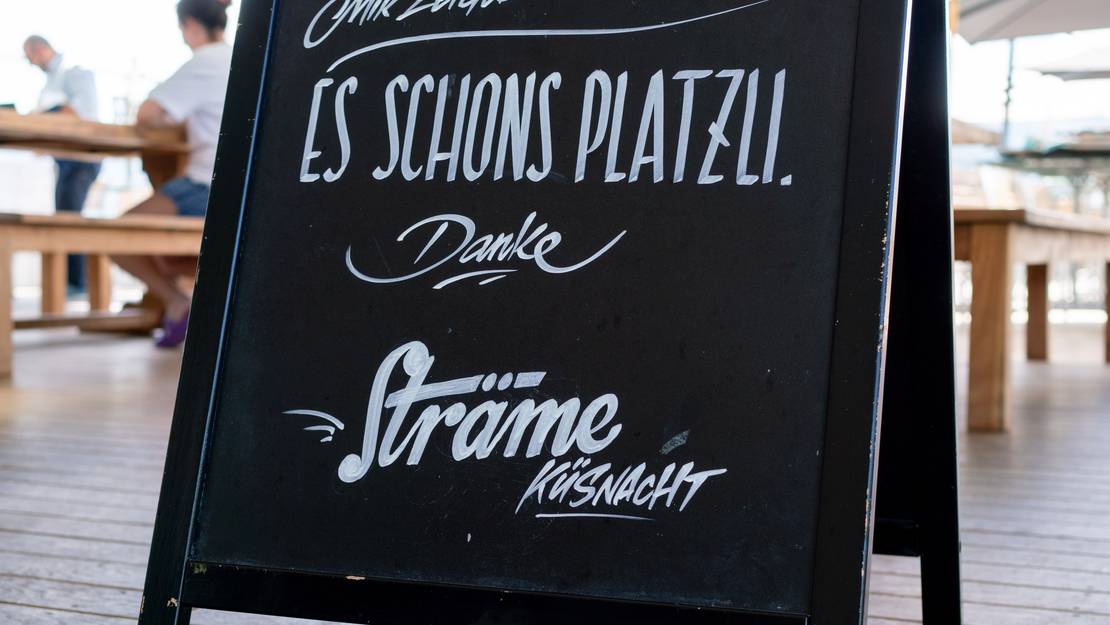 ES SCHÖNS PLÄTZLI.
Danke
Sträme
KÜSNACHT